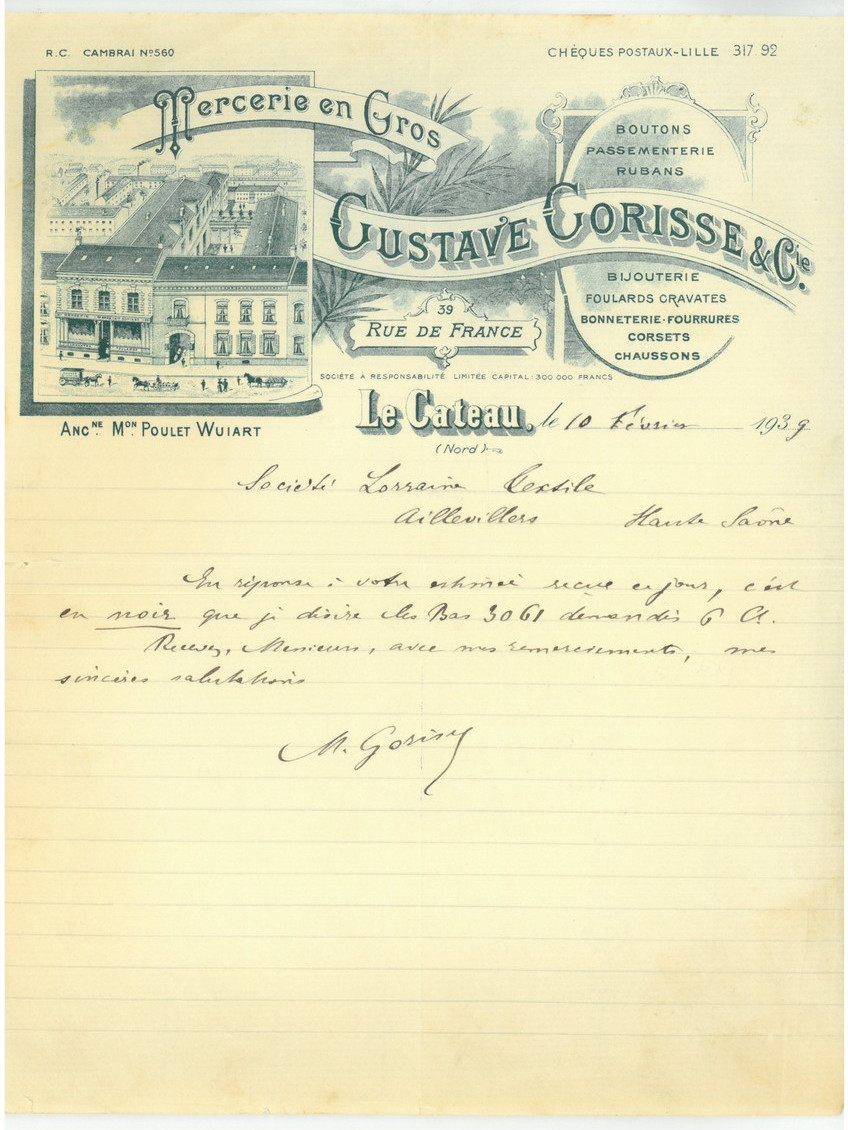 R.C. CAMBRAI Nº 560
CHÈQUES POSTAUX-LILLE 317 92
Mercerie en Gros
BOUTONS
PASSEMENTERIE
RUBANS
GUSTAVE GORISSE & Cie.
BIJOUTERIE
FOULARDS CRAVATES
BONNETERIE-FOURRURES
CORSETS
CHAUSSONS
39
RUE DE FRANCE
SOCIÉTÉ À RESPONSABILITÉ LIMITÉE CAPITAL: 300.000 FRANCS
ANCNE. MON. POULET WUIART
Le Cateau, le 10 Février 1939
(Nord)
Société Lorraine Textile
Aillevillers Haute Saône
En réponse à votre estimée reçue ce jour, c'est
en noir que je désire les Bas 3061 demandés 6
Recevez, Messieurs, avec mes remerciements, mes
sincères salutations
M. Gorisse